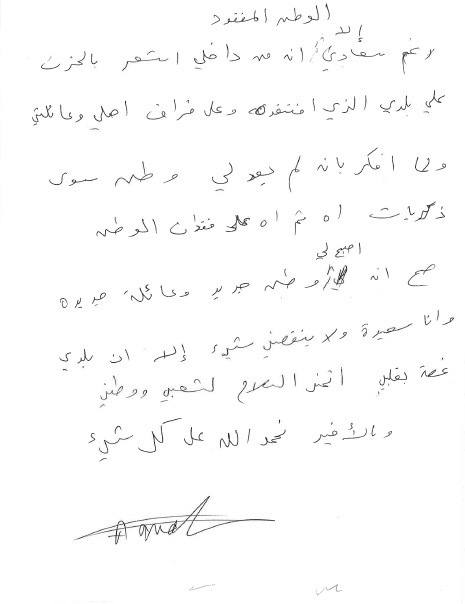 الوطن المفقود
رغم سعادتي إلا انه من داخلي اشعر بالحزن
على بلدي الذي افتقده وعلى فراق اهلي وعائلتي
وبما افكر بانه لم يعد لي وطن سوى
ذكريات اه ثم اه على فقدان الوطن
صح انه اصبح لي وطن جديد وعائلة جديده
وانا سعيدة ولا ينقصني شيء إلا ان بلدي
غصة بقلبي اتمنى السلام لشعبي ووطني
وبالأخير نحمد الله على كل شيء